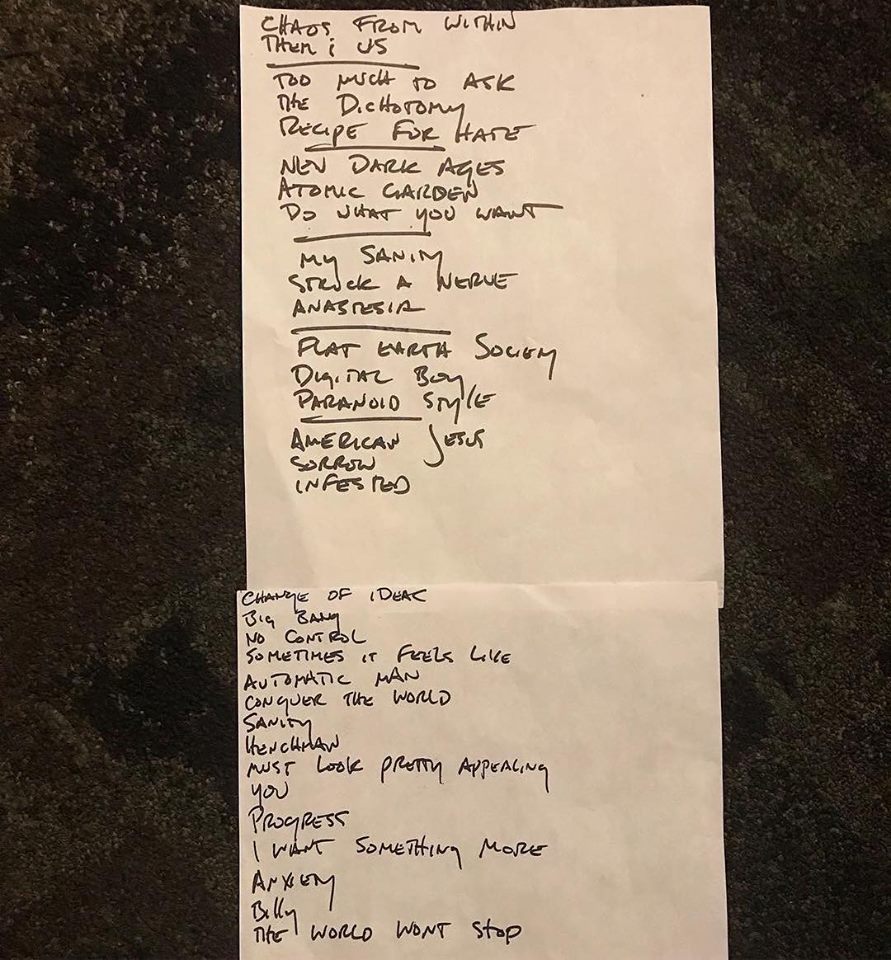 CHAOS FROM WITHIN
THEM & US
TOO MUCH TO ASK
THE DICHOTOMY
RECIPE FOR HATE
NEW DARK AGES
ATOMIC GARDEN
DO WHAT YOU WANT
MY SANITY
STRUCK A NERVE
ANASTESIA
FLAT EARTH SOCIETY
DIGITAL BOY
PARANOID STYLE
AMERICAN JESUS
SORROW
INFESTED
CHANGE OF IDEAS
BIG BANG
NO CONTROL
SOMETIMES IT FEELS LIKE
AUTOMATIC MAN
CONQUER THE WORLD
SANITY
HENCHMAN
MUST LOOK PRETTY APPEALING
YOU
PROGRESS
I WANT SOMETHING MORE
ANXIETY
Billy
THE WORLD WONT STOP